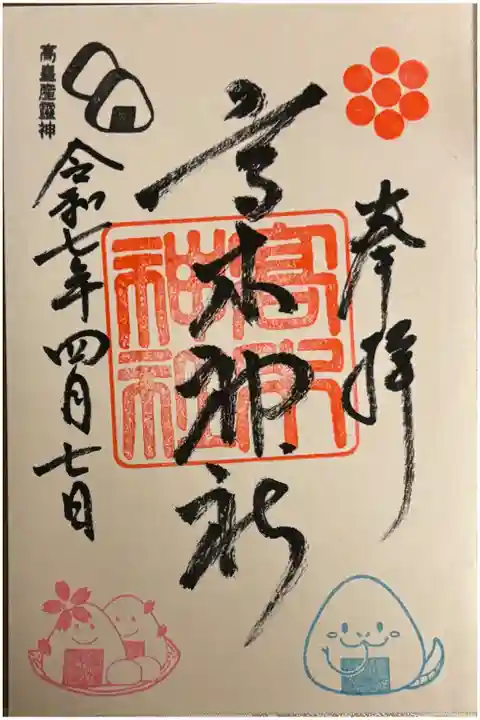 奉拝
高木神社
高木神社
高皇産靈神
令和七年四月七日